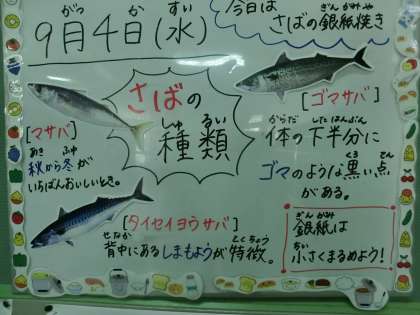 9月4日(水)
がつ か すい
今日は
さばの銀紙焼き
ぎんがみ や
さばの
種類
しゅ るい
[マサバ]
秋から冬が
あき ふゆ
いちばんおいしいとき。
[ゴマサバ]
体の下半分に
からだ したはんぶん
ゴマのような黒い点
くろ てん
がある。
[タイセイヨウサバ]
背中にあるしまもようが特徴。
せなか とくちょう
銀紙は
ぎんがみ
小さくまるめよう!
ちい